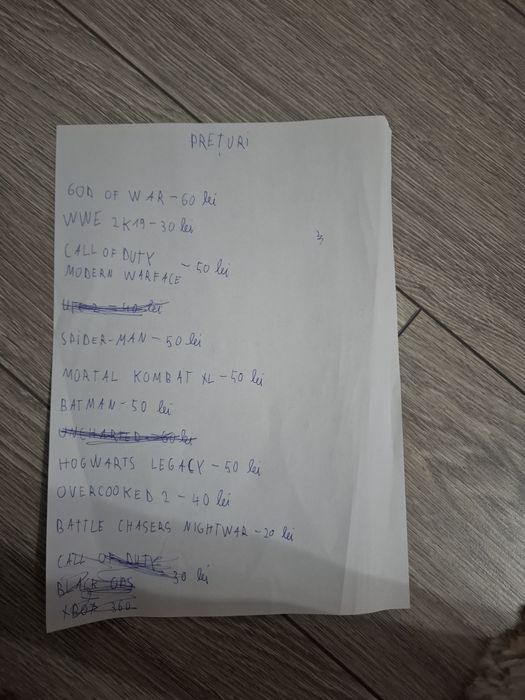 PREȚURI
GOD OF WAR - 60 lei
WWE 2K19 - 30 lei
CALL OF DUTY
MODERN WARFACE - 50 lei
UFC 2 - 40 lei
SPIDER-MAN - 50 lei
MORTAL KOMBAT XL - 50 lei
BATMAN - 50 lei
UNCHARTED - 60 lei
HOGWARTS LEGACY - 50 lei
OVERCOOKED 2 - 40 lei
BATTLE CHASERS NIGHTWAR - 20 lei
CALL OF DUTY
BLACK OPS 30 lei
XBOX 360